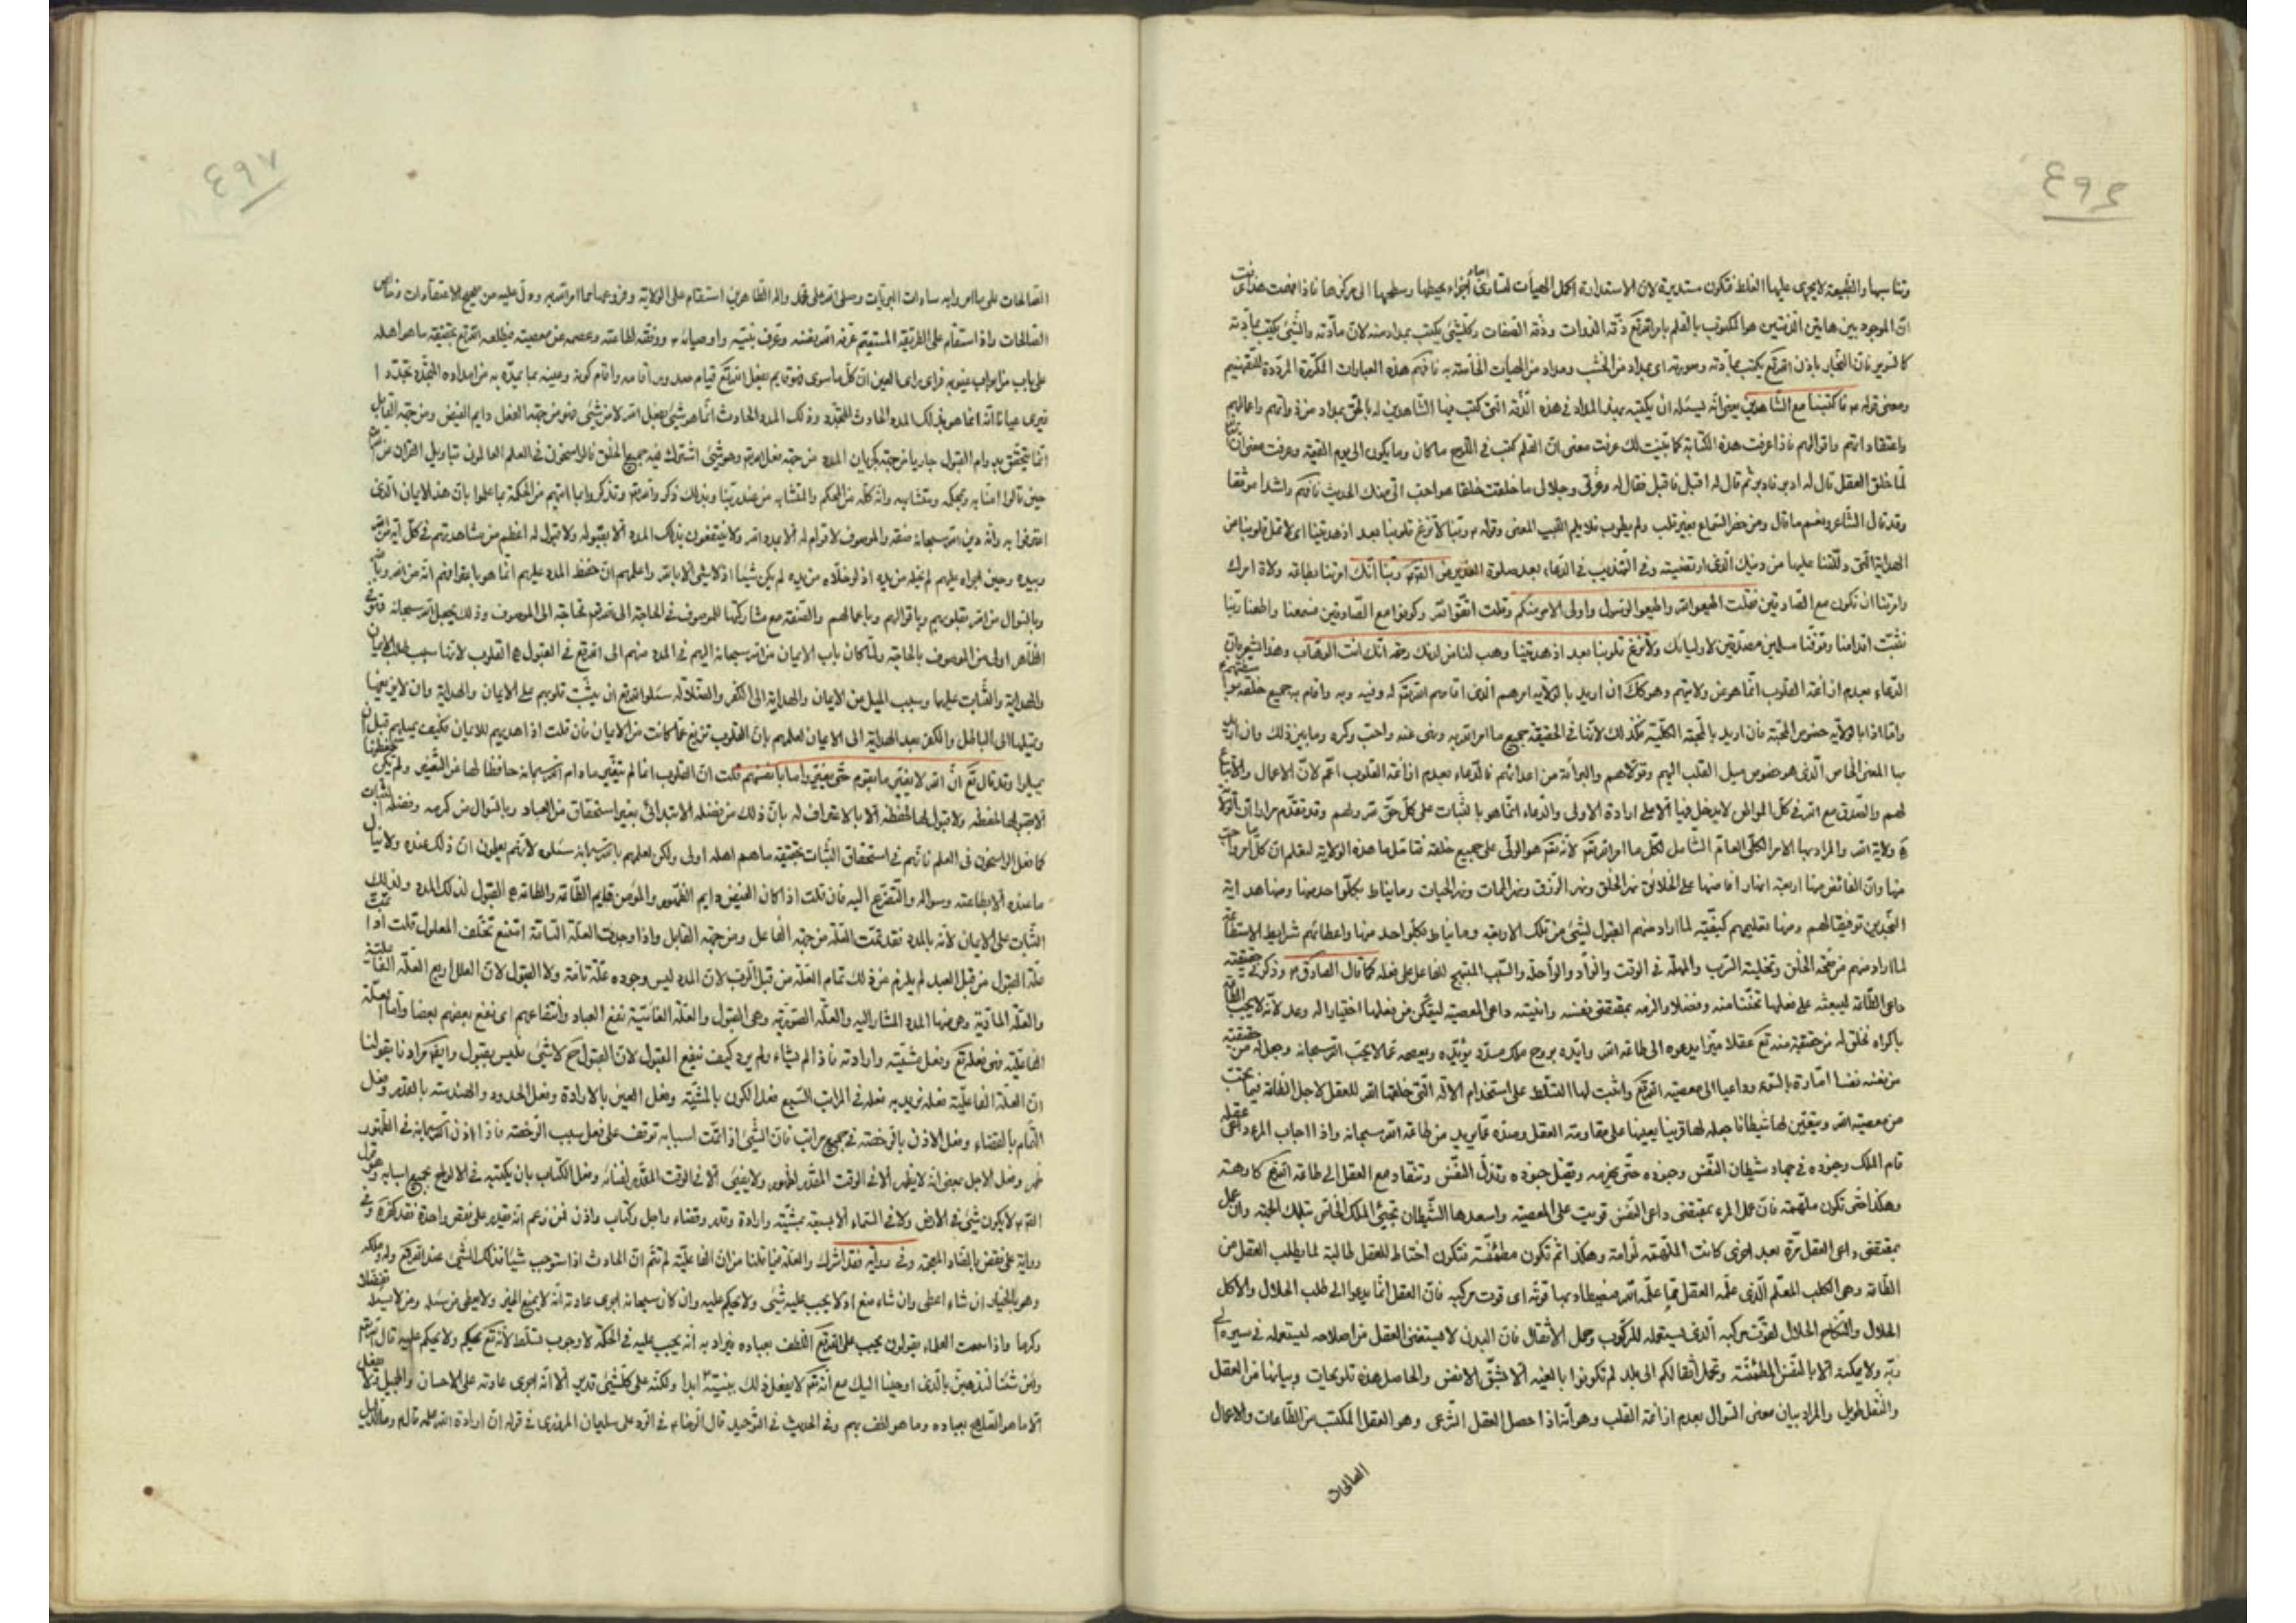 ٤٩٤
وتناسبها والطبيعة لايجرى عليها الغلط فتكون مستديرة لان الاستدارة اكمل الهيأت لتساوى اجزاء محيطها وسطحها الى مركزها فاذا فهمت هذا عرفت
ان الموجود بين هاتين الدفتين هو المكتوب بالقلم بامر الله تع دفة الذوات ودفة الصفات وكل شئ يكتب بمداد منه لان مادته والشئ يكتب بمادته
كالسرير فان النجار باذن الله تع يكتب بمادته وصورته اى بمداد من الخشب ومداد من الهيات الخاصة به فافهم هذه العبارات المكررة المرددة للتفهيم
ومعنى قوله ع فاكتبنا مع الشاهدين يعنى انه يسئله ان يكتبه بهذا المداد فى هذه الدفة التى كتب فيها الشاهدين له بالحق بمداد من ذواتهم واعمالهم
واعتقاداتهم واقوالهم فاذا عرفت هذه الكتابة كما بينت لك عرفت معنى ان القلم كتب فى اللوح ما كان وما يكون الى يوم القيمة وعرفت معنى ان
لما خلق العقل قال له ادبر فادبر ثم قال له اقبل فاقبل فقال له وعزتى وجلالى ما خلقت خلقا هو احب الى منك الحديث فافهم راشدا موفقا
وقد قال الشاعر ونعم ما قال ومن حضر السماع بغير قلب ولم يطرب فلا يلم المغنى وقوله ع ربنا لا تزغ قلوبنا بعد اذ هديتنا اى لا تمل قلوبنا عن
الهداية التى دللتنا عليها من دينك الذى ارتضيته وفى التهذيب فى الدعاء بعد صلوة الغدير عن الصادق ع ربنا انك امرتنا بطاعة ولاة امرك
وامرتنا ان نكون مع الصادقين فقلت اطيعوا الله واطيعوا الرسول واولى الامر منكم وقلت اتقوا الله وكونوا مع الصادقين فسمعنا واطعنا ربنا
فثبت اقدامنا وتوفنا مسلمين مصدقين لاوليائك ولا تزغ قلوبنا بعد اذ هديتنا وهب لنا من لدنك رحمة انك انت الوهاب وهذا يشير بان
الدعاء بعدم ازاغة القلوب انما هو عن ولايتهم وهو كك ان اريد بالولاية امرهم الذى اقامهم الله تع له وفيه وبه واقام به جميع خلقه
واما اذا بالولاية خصوص المحبة فان اريد بالمحبة الكلية فكذلك لانها فى الحقيقة جميع ما امر الله به ونهى عنه واحب وكره وما بين ذلك وان اريد
بها المعنى الخاص الذى هو خصوص ميل القلب اليهم وتولاهم والبرائة من اعدائهم فالدعاء بعدم ازاغة القلوب اعم لان الاعمال والاتباع
لهم والصدق مع الله فى كل المواطن لايدخل فيها الا على ارادة الاولى والدعاء انما هو بالثبات على كل حق لله ولهم وقد تقدم مرارا ان الولاية
ه ولاية الله والمراد بها الامر الكلى العام الشامل لكل ما امر الله تع لانه تع هو الولى على جميع خلقه فتامل ما هذه الولاية لتعلم ان كل امر
منها وان الفائض منها اربعة انهار افاضها على الخلائق نهر الخلق ونهر الرزق ونهر الممات ونهر الحيات وما يناط بكل واحد منها ومنها هداية
النجدين توفيقا لهم ومنها تعليمهم كيفية لما اراد منهم القبول لشئ من تلك الاربعة وما يناط بكل واحد منها واعطائهم شرايط الاستقامة
لما اراد منهم من صحة الخلق وتخلية السرب والمهلة فى الوقت والزاد والراحلة والسبب المهيج للفاعل على فعله كما قال الصادق ع وذكر فى
داعى الطاعة ليبعثه على فعلها تحننا منه وفضلا والزمه بمقتضى نفسه وانيته داعى المعصية ليتمكن من فعلها اختيارا له وعدلا لانه لايجب الطاعة
باكراه فخلق له من حقيقة منه تع عقلا مميزا يدعوه الى طاعة الله وايده بروح ملك مسدد يؤيده ويعصمه عما لايحب الله سبحانه وجعل له من
من نفسه نفسا امارة بالسوء وداعيا الى معصية الله تع واثبت لها التسلط على استخدام الالة التى خلقها الله للعقل لاجل الطاعة فيما تحب
من معصية الله ويقيض لها شيطانا جعله لها قرينا يعينها على مقاومة العقل وصده عما يريد من طاعة الله سبحانه واذا اجاب المرء داعى عقله
قام الملك وجنوده فى جهاد شيطان النفس وجنوده حتى يهزمه ويقتل جنوده وتذل النفس وتنقاد مع العقل الى طاعة الله تع كارهة
وهكذا حتى تكون ملهمة فان عمل المرء بمقتضى داعى النفس قويت على المعصية واسعدها الشيطان
بمقتضى داعى العقل مرة بعد اخرى كانت الملهمة لوامة وهكذا ثم تكون مطمئنة فتكون اختا للعقل طالبة لما يطلب العقل من
الطاعة وهى الكلب المعلم الذى علمه العقل مما علمه الله فيصطاد بها قوته اى قوت مركبه فان العقل انما يدعوا الى طلب الحلال والاكل
الحلال والنكاح الحلال لقوت مركبه الذى يستعمله للركوب وحمل الاثقال فان البدن لا يستغنى العقل من اصلاحه ليستعمله فى سيره الى
ربه ولا يمكنه الا بالنفس المطمئنة وتحمل اثقالكم الى بلد لم تكونوا بالغيه الا بشق الانفس والحاصل هذه تلويحات وبيانها من العقل
والنقل طويل والمراد بيان معنى السؤال بعدم ازاغة القلب وهو انه اذا حصل العقل الشرعى وهو العقل المكتسب من الطاعات والاعمال
الصالحات
٤٩٧
الصالحات على ما امروا به سادات البريات وصلى الله على محمد واله الطاهرين استقام على الولاية وفروعها مما امر الله به ودل عليه من صحيح الاعتقادات وخالص
الصالحات واذا استقام على الطريقة المستقيم عرفه الله نفسه وعرف نبيه واوصيائه ع ووفقه لطاعته وعصمه عن معصيته فيطلعه الله تع بحقيقة ما هو اهله
على باب من ابواب غيوبه فراى براى العين ان كل ما سوى فهو قايم بفعل الله تع قيام صدور
فيرى عيانا انه انما هو بذلك المدد الحادث المتجدد وذلك المدد الحادث انما هو شئ بفعل الله لا من شئ فهو من جهة الفعل دايم الفيض ومن جهة القابل
انما يتحقق بدوام القبول جاريا من جهة كجريان المدد من جهة فعل الله تع وهو شئ اشترك فيه جميع الخلق فالراسخون فى العلم العالمون بتاويل القران
حين قالوا امنا به وبمحكمه ومتشابهه وانه كله من المحكم والمتشابه من عند ربنا وبذلك ذكروا انفسهم وتذكروا بما اتيهم من الحكمة بما علموا بان هذا الايمان الذى
اعترفوا به وانه دين الله سبحانه صفة والموصوف لا قوام له الا بمدد الله ولا ينتفعون بذلك المدد الا بقبوله ولا قبول له اعظم من مشاهدتهم فى كل اية
وبيده وحين اجراه عليهم لم يخله من يده اذ لو خلاه من يده لم يكن شيئا اذ لا شئ الا بالله واعلمهم ان حفظ المدد عليهم انما هو باعترافهم انه من الله
وبالسؤال من الله بقلوبهم وباقوالهم وباعمالهم والصفة مع مشاركتها للموصوف فى الحاجة الى الله تع محتاجة الى الموصوف وذلك بجعل الله سبحانه
الظاهر اولى من الموصوف بالحاجة ولما كان باب الايمان من الله سبحانه اليهم فى المدد منهم الى الله تع فى القبول ه القلوب لانها سبب طلب الايمان
والهداية والثبات عليها وسبب الميل من الايمان والهداية الى الكفر والضلالة سئلوا الله تع ان يثبت قلوبهم على الايمان والهداية وان لا يزيغها
ويميلها الى الباطل والكفر بعد الهداية الى الايمان لعلمهم بان القلوب تزيغ عما كانت من الايمان فان قلت اذا هديهم للايمان فكيف يميلهم قبل ان
يميلوا وقد قال تع ان الله لا يغير ما بقوم حتى يغيروا ما بانفسهم قلت ان القلوب انما لم تتغير ما دام الله سبحانه حافظا لها عن التغيير ولم يكن حفظها
الا بقبولها لحفظه ولا قبول لها لحفظه الا بالاعتراف له بان ذلك من فضله الابتدائى بغير استحقاق من العباد وبالسؤال من كرمه وفضله الثبات
كما فعل الراسخون فى العلم فانهم فى استحقاق الثبات بحقيقة ما هم اهله اولى ولكن لعلمهم بالله سبحانه سئلوه لانهم يعلمون ان ذلك عنده ولا ينال
ما عنده الا بطاعته وسؤاله والتضرع اليه فان قلت اذا كان الفيض دايم الظهور والمؤمن قايم الطاعة والطاعة ه القبول لذلك المدد ولذلك
الثبات على الايمان لانه بالمدد فقد تمت العلة من جهة الفاعل ومن جهة القابل واذا وجدت العلة التامة امتنع تخلف المعلول قلت اذا تمت
علة القبول من قبل العبد لم يلزم من ذلك تمام العلة من قبل الرب لان المدد ليس وجوده علة تامة ولا القبول لان العلل اربع العلة الفاعلية
والعلة المادية وهى منها المدد المشار اليه والعلة الصورية وهى القبول والعلة الغائية نفع العباد وانتفاعهم اى نفع بعضهم بعضا واما العلة
الفاعلية فهى فعله تع وفعل مشيته وارادته فاذا لم يشاء ولم يرد كيف ينفع القبول لان القبول ح لا شئ فليس بقبول وايضا مرادنا بقولنا
ان العلة الفاعلية فعله نريد به فعله فى المراتب السبع فعل الكون بالمشية وفعل العين بالارادة وفعل الحدود والهندسة بالقدر وفعل
التمام بالقضاء وفعل الاذن باقى خصته فى جميع مراتب فان الشئ اذا تمت اسبابه توقف على فعل سبب الرخصة فاذا اذن الله سبحانه فى الظهور
ظهر وفعل الاجل يعنى انه لايظهر الا فى الوقت المقدر لظهوره ولايفنى الا فى الوقت المقدر لفنائه وفعل الكتاب بان يكتبه فى الالواح بجميع اسبابه وهو قول
الصادق ع لايكون شئ فى الارض ولا فى السماء الا بسبعة بمشية وارادة وقدر وقضاء واجل وكتاب واذن فمن زعم انه يقدر على نقص واحدة فقد كفر وفى
رواية على نقض بالضاد المعجمة وفى رواية فقد اشرك والعلة فيما قلنا من ان الفاعلية لم تتم ان الحادث اذا استوجب شيئا فذلك الشئ عند الله تع وله وملكه
وهو بالخيار ان شاء اعطى وان شاء منع اذ لايجب عليه شئ ولا يحكم عليه وان كان سبحانه اجرى عادته انه لايمنع الخير ولا يعطى من سئله ومن لايسئله تفضلا
وكرما واذا سمعت العلماء يقولون يجب على الله تع اللطف بعباده فيراد به انه يجب عليه فى الحكمة لا وجوب تسلط لانه تع يحكم ولا يحكم عليه قال الله تع
ولئن شئنا لنذهبن بالذى اوحينا اليك مع انه تع لايفعل ذلك بنبيه ص ابدا ولكنه على كل شئ قدير الا انه اجرى عادته على الاحسان والجميل فلا يفعل
الا ما هو الصلاح بعباده وما هو لطف بهم وفى الحديث فى التوحيد قال الرضا ع فى الرد على سليمان المروزى فى قوله ان ارادة الله علمه قال ع وما الدليل